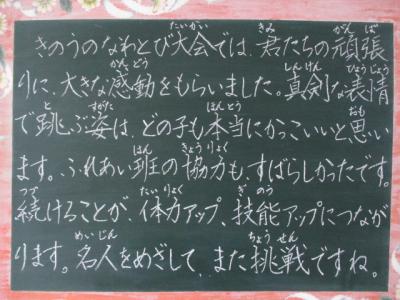 きのうのなわとび大会では、君たちの頑張
りに、大きな感動をもらいました。真剣な表情
で跳ぶ姿は、どの子も本当にかっこいいと思い
ます。ふれあい班の協力も、すばらしかったです。
続けることが、体力アップ、技能アップにつなが
ります。名人をめざして、また挑戦ですね。